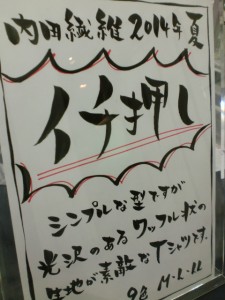 内田繊維2014年夏
イチ押し
シンプルな型ですが
光沢のあるワッフル状の
生地が素敵なTシャツです。
9色 M-L-LL